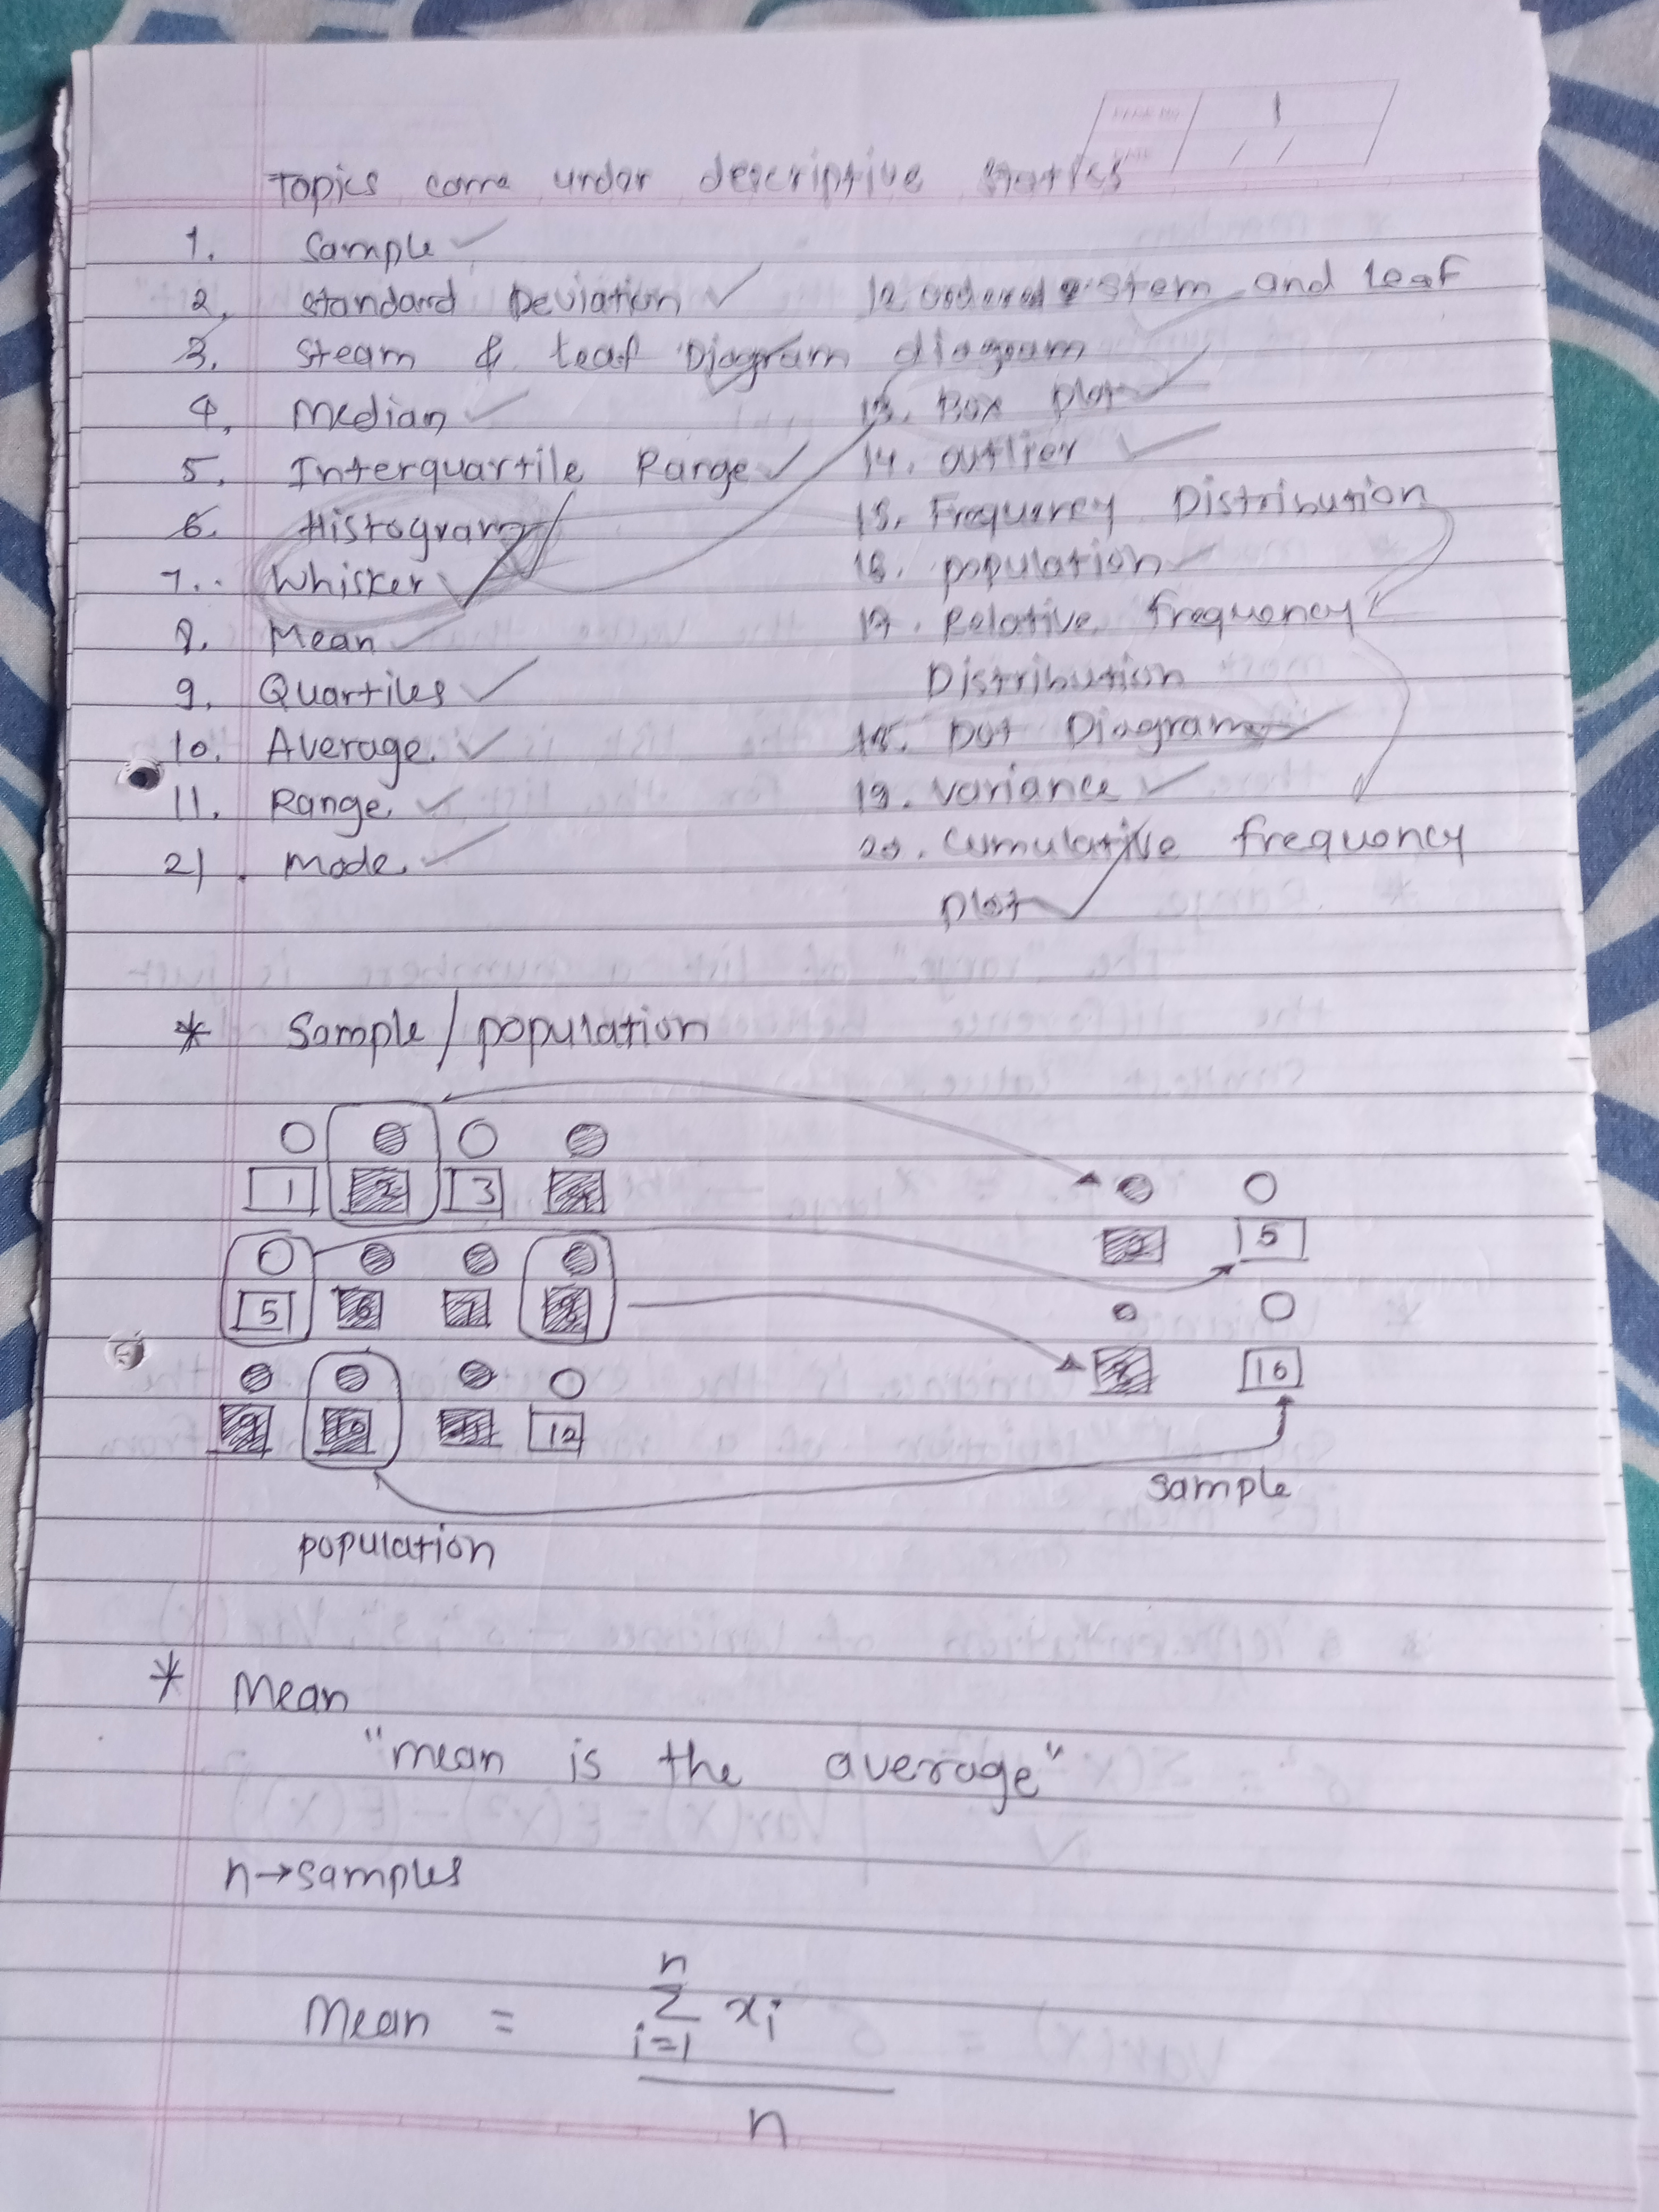 1
Topics come under descriptive
1. Sample
2. Standard Deviation
3. Steam & Leaf Diagram
4. Median
5. Interquartile Range
6. Histogram
7. Whisker
8. Mean
9. Quartiles
10. Average.
11. Range.
21. Mode.
12 ordered stem and leaf
diagram
13. Box plot
14. outlier
15. Frequency Distribution
16. population
17. Relative frequency
Distribution
18. Dot Diagram
19. variance
20. Cumulative frequency
plot
* Sample/population
1 2 3 4
5 6 7 8
9 10 11 12
population
2 5
8 10
sample
* Mean
"mean is the average"
n→samples
Mean = n Σ i=1 xi / n